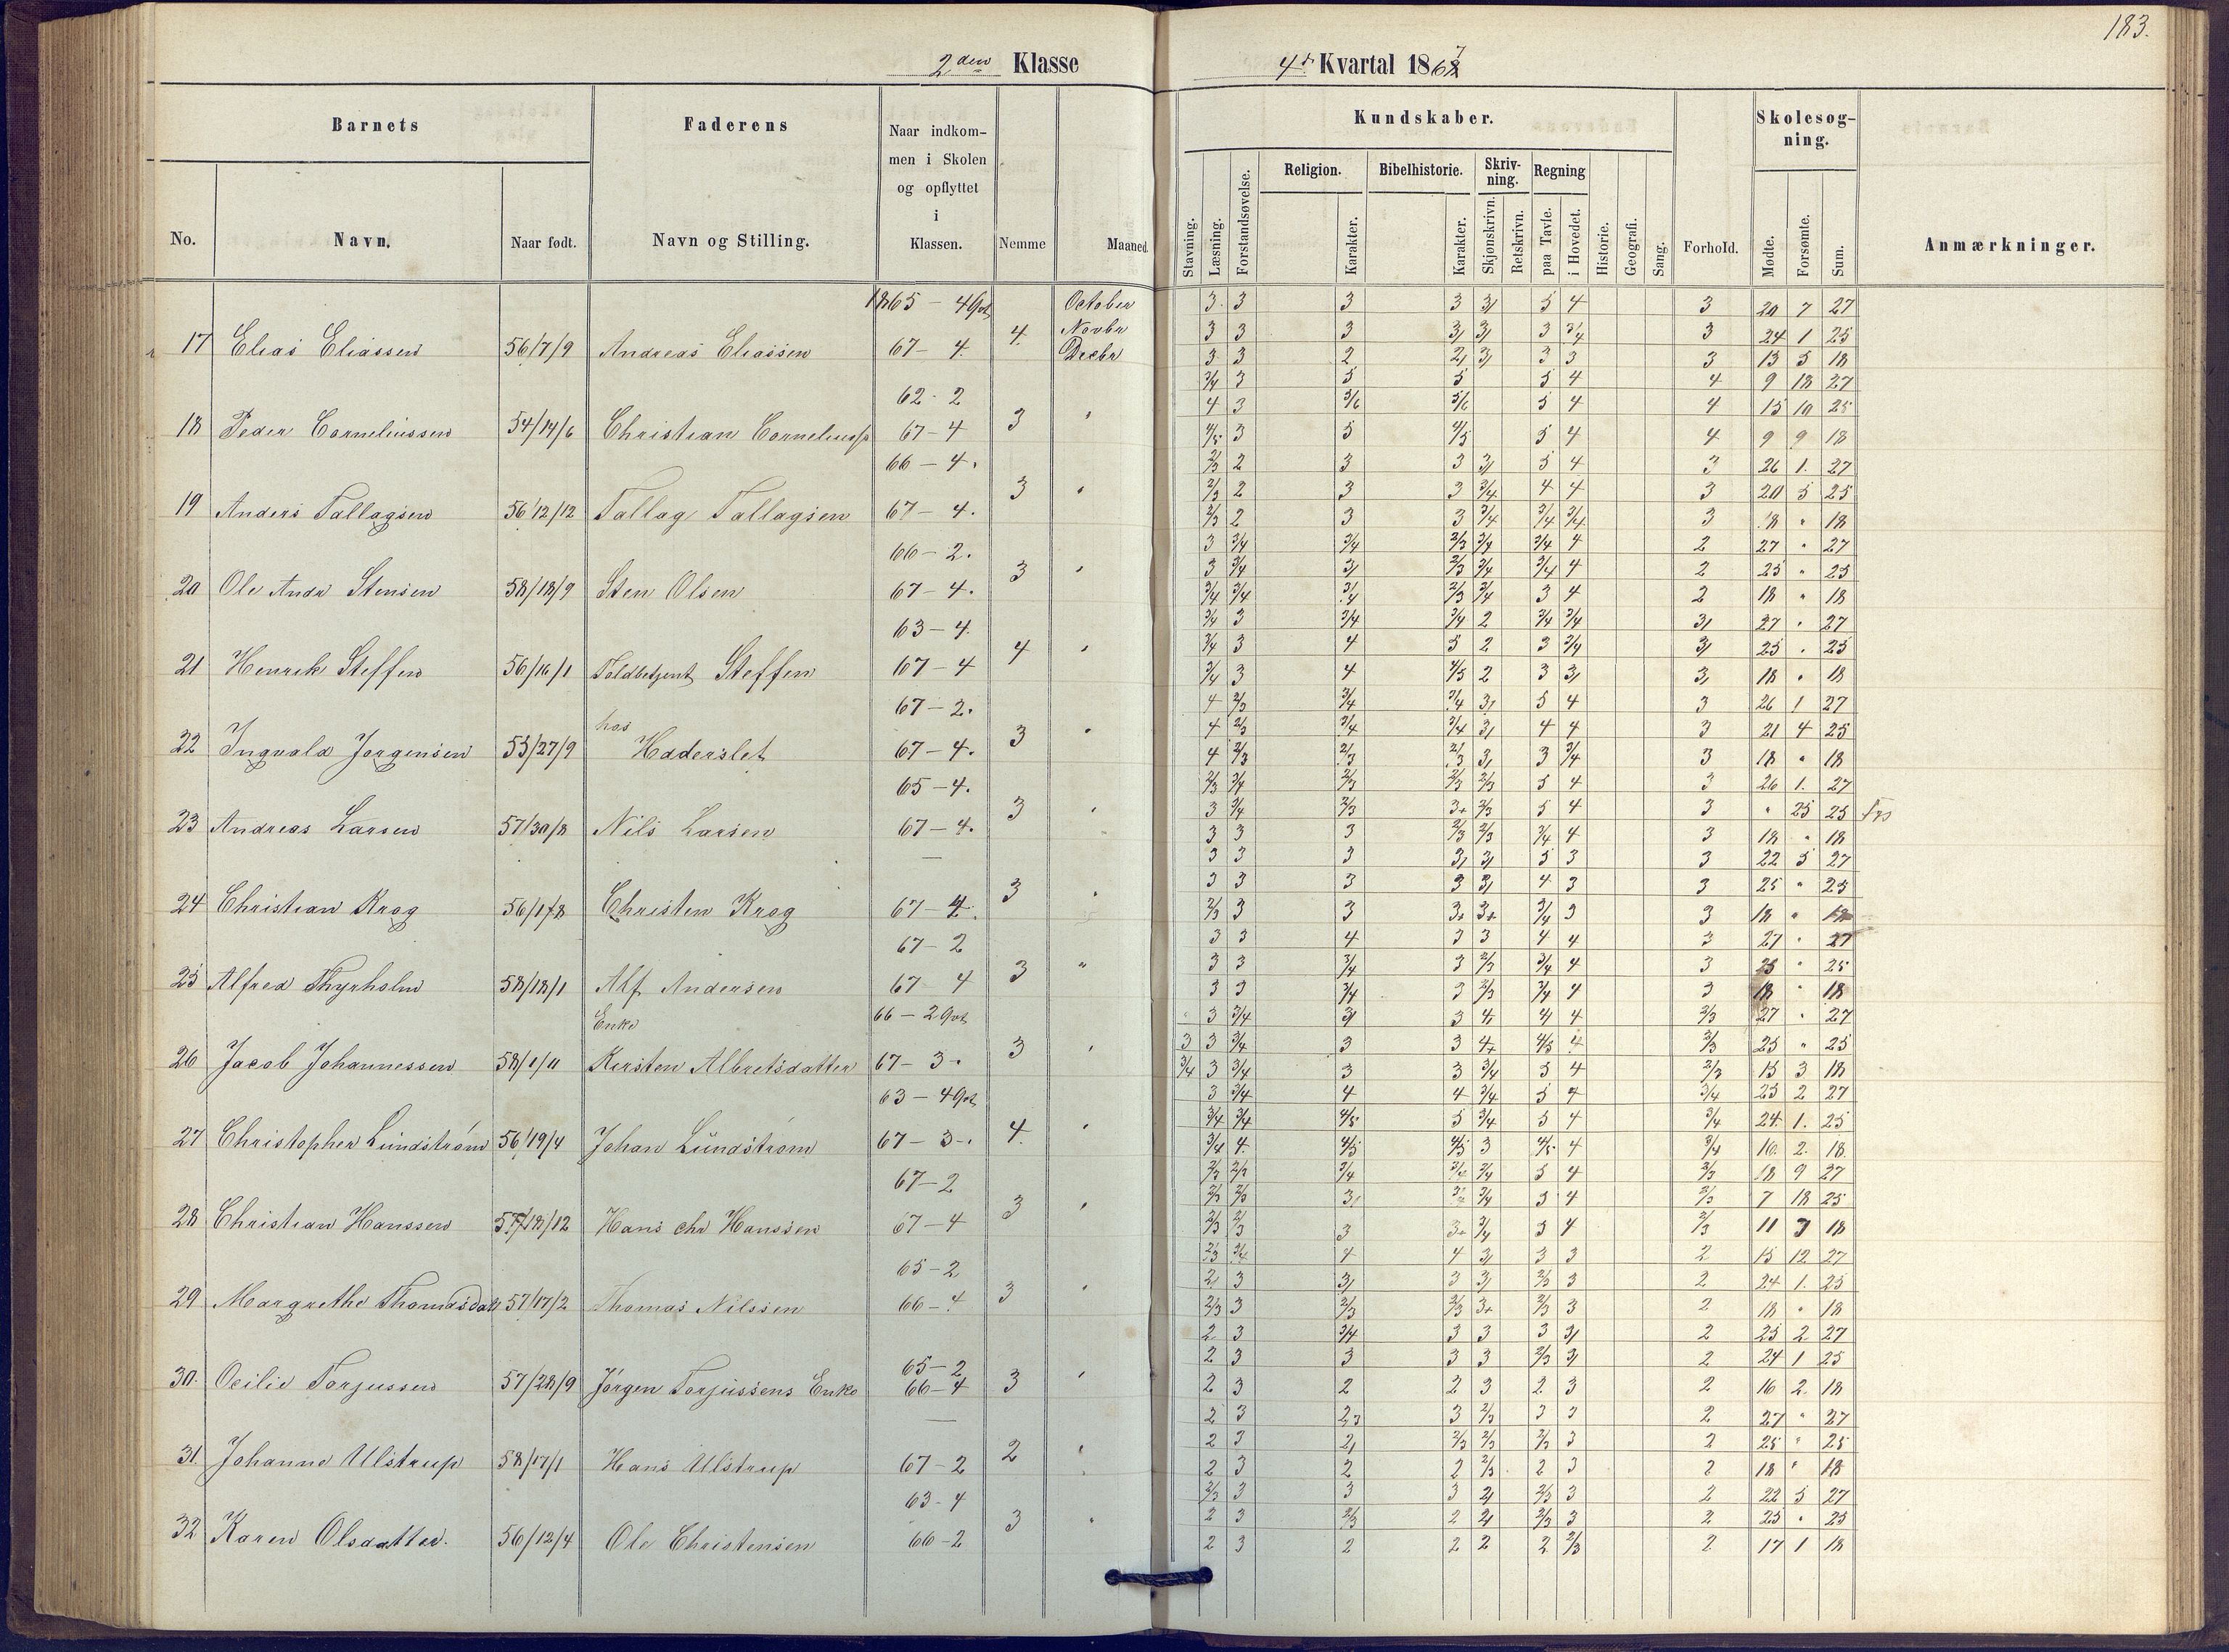 183.
2den Klasse
4de Kvartal 1867
Barnets
Faderens
Naar indkommen i Skolen og opflyttet i Klassen.
Nemme
Maaned.
No.
Navn.
Naar født.
Navn og Stilling.
Kundskaber.
Stavning.
Læsning.
Forstandsøvelse.
Religion.
Karakter.
Bibelhistorie.
Karakter.
Skrivning.
Skjønskrivn.
Retskrivn.
Regning
paa Tavle.
i Hovedet.
Historie.
Geografi.
Sang.
Forhold.
Skolesogning.
Mødte.
Forsømte.
Sum.
Anmærkninger.
1865 - 4 Qvt October 3 3 3 3 3/ 5 4 3 20 7 27
Novbr 3 3 3 3/ 3/ 3 3/4 3 24 1 25
17 Elias Eliassen 56/7/9 Andreas Eliassen 67 - 4. 4. Decbr 3 3 2 2/ 3/ 3 3 3 13 5 18
3/4 3 5 5 5 4 4 9 18 27
62 - 2 4 3 5/6 5/6 5 4 4 15 10 25
18 Peder Corneliussen 54/14/6 Christian Corneliuss 67 - 4 3 " 4/5 3 5 4/5 5 4 4 9 9 18
66 - 4. 2/3 2 3 3 3/ 5 4 3 26 1. 27
2/3 2 3 3 3/4 4 4 3 20 5 25
19 Anders Tallagsen 56/12/12 Tallag Tallagsen 67 - 4. 3 " 2/3 2 3 3 3/4 3/4 3/4 3 18 " 18
66 - 2. 3 3/4 3/4 2/3 3/4 3/4 4 2 27 " 27
3 3/4 3/ 2/3 3/4 3/4 4 2 25 " 25
20 Ole Andr Stensen 58/18/9 Sten Olsen 67 - 4. 3 " 3/4 3/4 3/4 2/3 3/4 3 4 2 18 " 18
63 - 4. 3/4 3 3/4 3/4 2 3/4 3/4 3/ 27 " 27
3/4 3 4 5 2 3 3/4 3/ 25 " 25
21 Henrik Steffen 56/16/1 Toldbetjent Steffen 67 - 4 4 " 3/4 3 4 4/5 2 3 3/ 3/ 18 " 18
67 - 2. 4 2/3 3/4 3/4 3/ 5 4 3 26 1 27
hos 4 2/3 3/4 3/4 3/ 4 4 3 21 4 25
22 Ingvald Jorgensen 55/27/9 Haderslet 67 - 4. 3 " 4 2/3 2/3 2/3 3/ 3 3/4 3 18 " 18
65 - 4. 2/3 3/4 2/3 2/3 2/3 5 4 3 26 1. 27
3 3/4 2/3 3+ 2/3 5 4 3 " 25 25
23 Andreas Larsen 57/30/8 Nils Larsen 67 - 4. 3 " 3 3 3 2/3 2/3 3/4 4 3 18 " 18
— 3 3 3 3/ 3/ 5 3 3 22 5 27
3 3 3 3 3/ 4 3 3 25 " 25
24 Christian Krog 56/17/8 Christen Krog 67 - 4. 3 " 2/3 3 3 3+ 3+ 3/4 3 3 18 " 18
67 - 2 3 3 4 3 3 4 4 3 27 " 27
3 3 3/4 3 2/3 3/4 4 3 25 " 25
25 Alfred Thyrholm 58/18/1 Alf Andersen 67 4 3 " 3 3 3/4 3 2/3 3/4 4 3 18 " 18
Enke 66 - 2 Qvt 3 3/4 3/ 3 4+ 4/ 4 2/3 27 " 27
3 3 3/4 3 3 4+ 4/5 4 2/3 25 " 25
26 Jacob Johannessen 58/1/11 Kirsten Albretsdatter 67 - 3. 3 " 3/4 3 3/4 3 3 3/4 5 4 2/3 15 3 18
63 - 4 Qvt 3 3/4 4 4 3/4 5 4 3/4 25 2 27
3/4 3/4 4/5 5 3/4 5 4 3/4 24 1. 25
27 Christopher Lundstrøm 56/19/4 Johan Lundstrøm 67 - 3. 4. " 3/4 4 4/5 4/5 3 4/5 4 3/4 16 2. 18
67 - 2 2/3 2/3 3/4 3/4 3/4 5 4 2/3 18 9 27
2/3 2/3 3/ 3/4 5 4 2/3 7 18 25
28 Christian Hanssen 57/18/12 Hans chr Hanssen 67 - 4 3 " 2/3 2/3 3 3+ 3/4 5 4 2/3 11 7 18
65 - 2 2/3 3/4 4 4 3/ 3 3 2 15 12 27
2/ 3 3/ 3 3/ 2/3 3 2 24 1. 25
29 Margrethe Thomasdatr 57/17/2 Thomas Nilssen 66 - 4 3 " 2/3 3 2/3 2/3 3+ 2/3 3 2 18 " 18
2 3 3/4 3 3 3 3/ 2 25 2 27
65 - 2 2 3 3 3 3 2/3 3/ 2 24 1 25
30. Ocilie Torjussen 57/28/9 Jörgen Torjussens Enke 66 - 4 3 " 2 3 2 2 3 2 3 2 16 2. 18
— 2 3 2,3 3 2/3 3 3 2 27 " 27
2 3 2/ 2/3 2/3 2/3 3 2 25 " 25
31. Johanne Ulstrup 58/17/1 Hans Ulstrup 67 - 2 2 " 2 3 2 2 2/3 2 3 2 18 " 18
63 - 4 2/3 3 3 3 2/ 2/3 3 2 22 5 27
2 3 2/3 2 2/ 2/3 3 2 25 " 25
32 Karen Olsdatter. 56/12/4 Ole Christensen 66 - 2 3 " 2 3 2 2 2 2 2/3 2 17 1 18